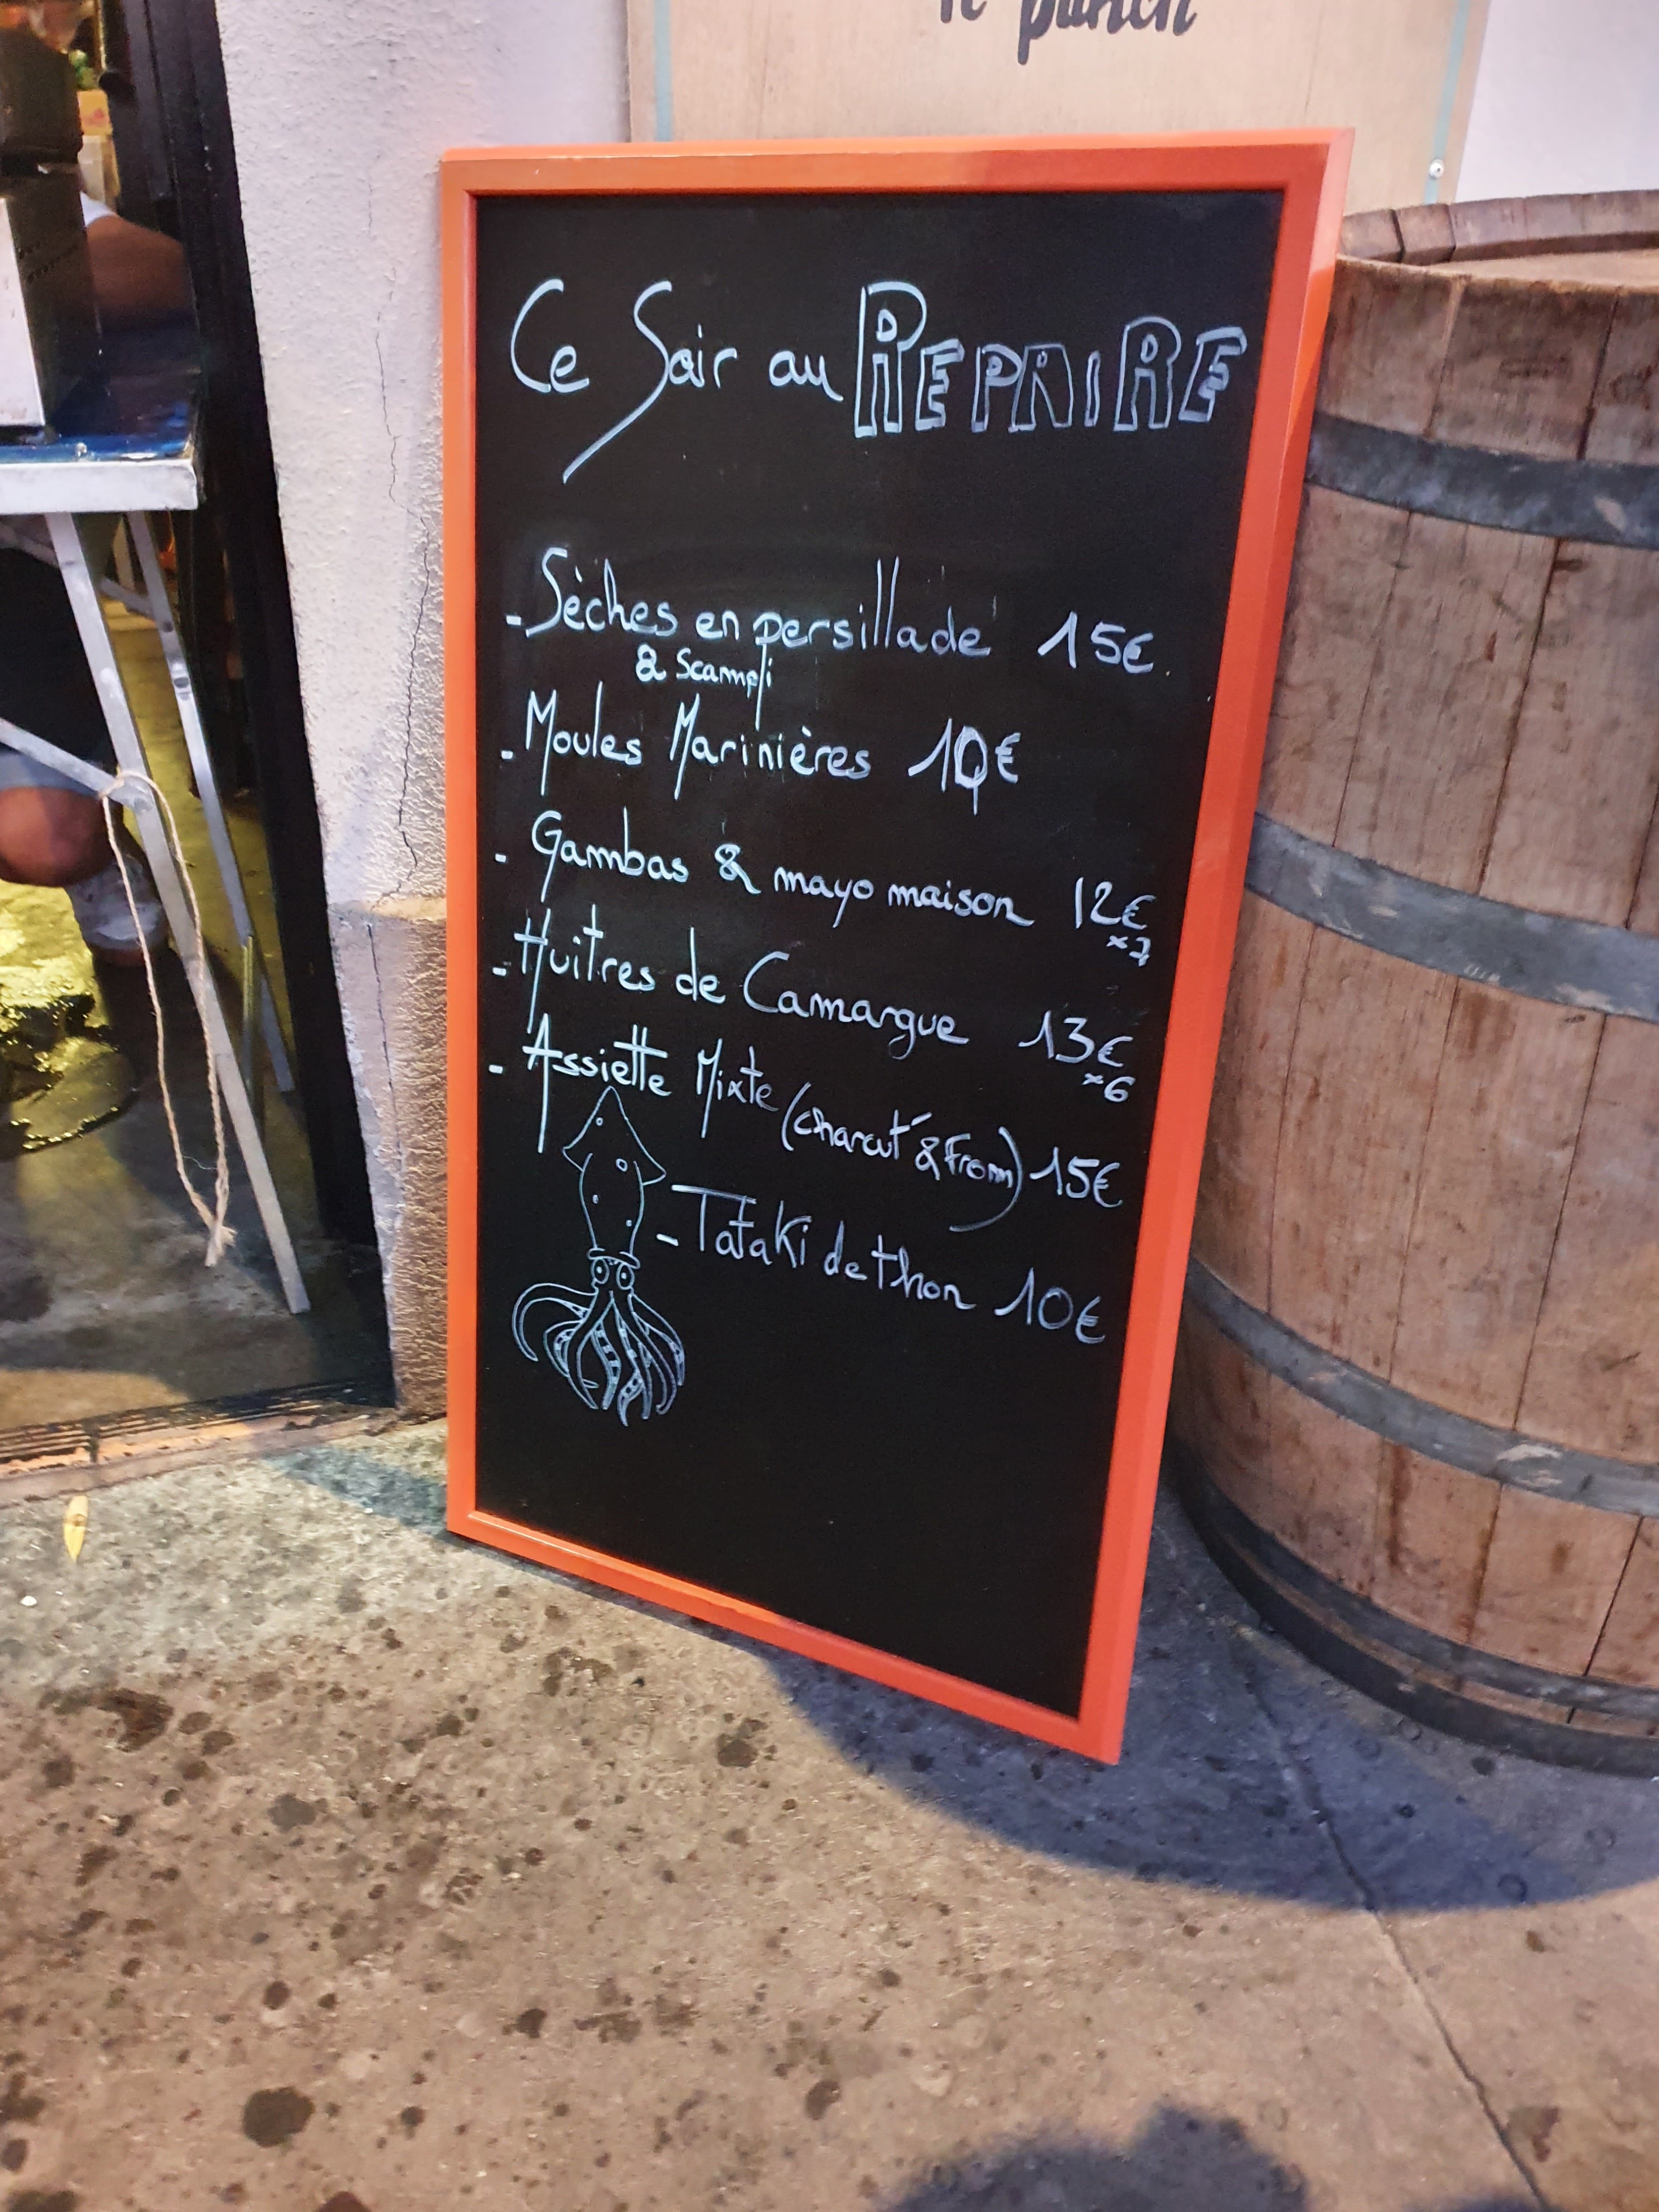 le punch
Ce Soir au REPAIRE
- Sèches en persillade 15€
& Scampi
- Moules Marinières 10€
- Gambas & mayo maison 12€
x7
- Huitres de Camargue 13€
x6
- Assiette Mixte (charcut' & From) 15€
- Tataki de thon 10€